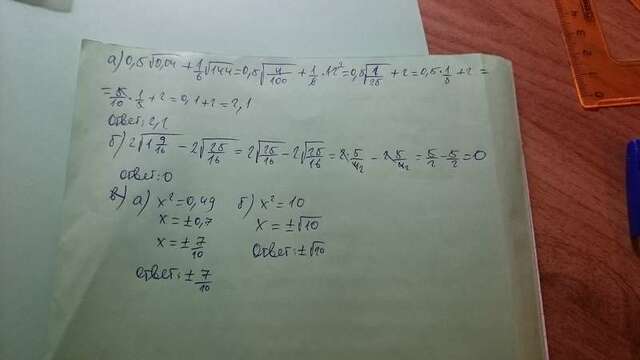 а) 0,5√0,04 + 1/6 √144 = 0,5√4/100 + 1/6 · 12 = 0,5√1/25 + 2 = 0,5 · 1/5 + 2 =
= 5/10 · 1/5 + 2 = 0,1 + 2 = 2,1
Ответ: 2,1
б) 2√1 9/16 - 2√25/16 = 2√25/16 - 2√25/16 = 2 · 5/4 - 2 · 5/4 = 5/2 - 5/2 = 0
Ответ: 0
а) x² = 0,49
x = ± 0,7
x = ± 7/10
Ответ: ± 7/10
б) x² = 10
x = ±√10
Ответ: ±√10
0 1 2 3 4